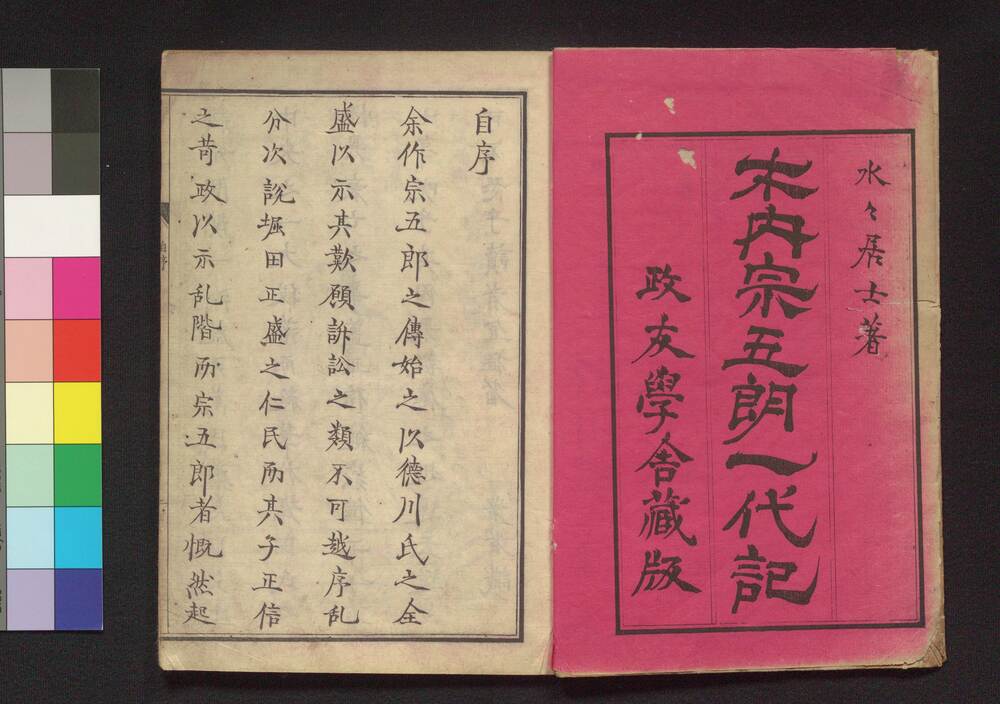 水々居士著
木内宗五朗一代記
政友學舎藏版
自序
余作宗五郎之傳始之以德川氏之全
盛以示其歎願訴訟之類不可越序乱
分次説堀田正盛之仁民而其子正信
之苛政以示乱階而宗五郎者慨然起